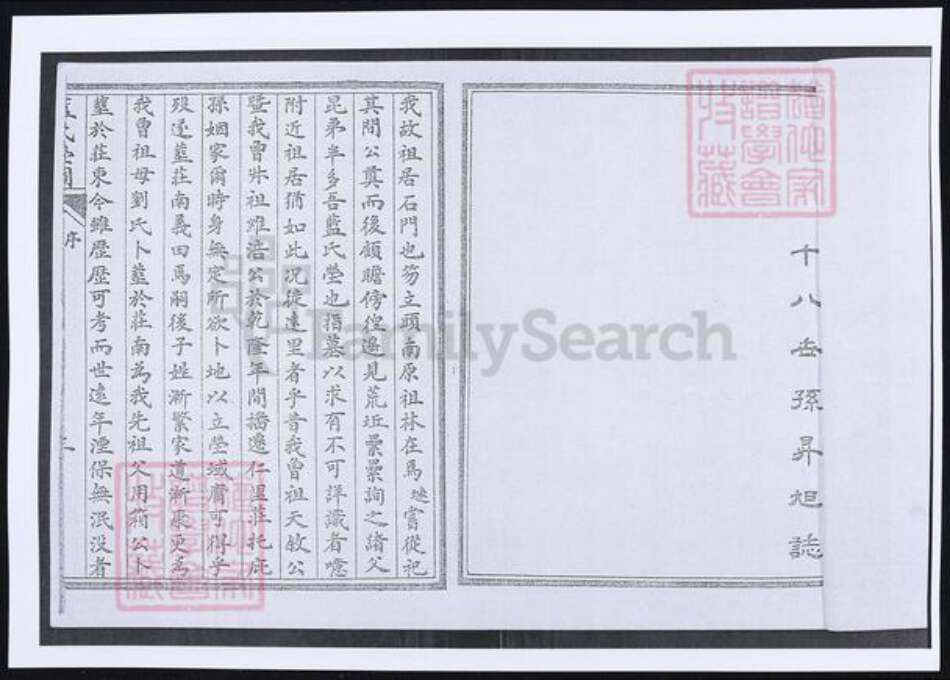 十八岳孫昇旭誌
我故祖居石門也笏立頭南原祖林在焉嘗從祀
其間公奠而後顧瞻傍徨過見荒坵纍纍詢之諸父
昆弟半多吾藍氏塋也指墓以求有不可詳識者噫
附近祖居猶如此况徒遠里者乎昔我曾祖天敘公
暨我曾叔祖雉浩公於乾隆年間播遷仁里莊托庇
孫姻家爾時身無定所欲卜地以立塋域庸可得乎
歿遂葬莊南義田焉嗣後子姓漸繁家道漸康更為
我曾祖母劉氏卜葬於莊南為我先祖父用箱公卜
葬於莊東今雖歷歷可考而世遠年湮保無泯没者
序
FamilySearch